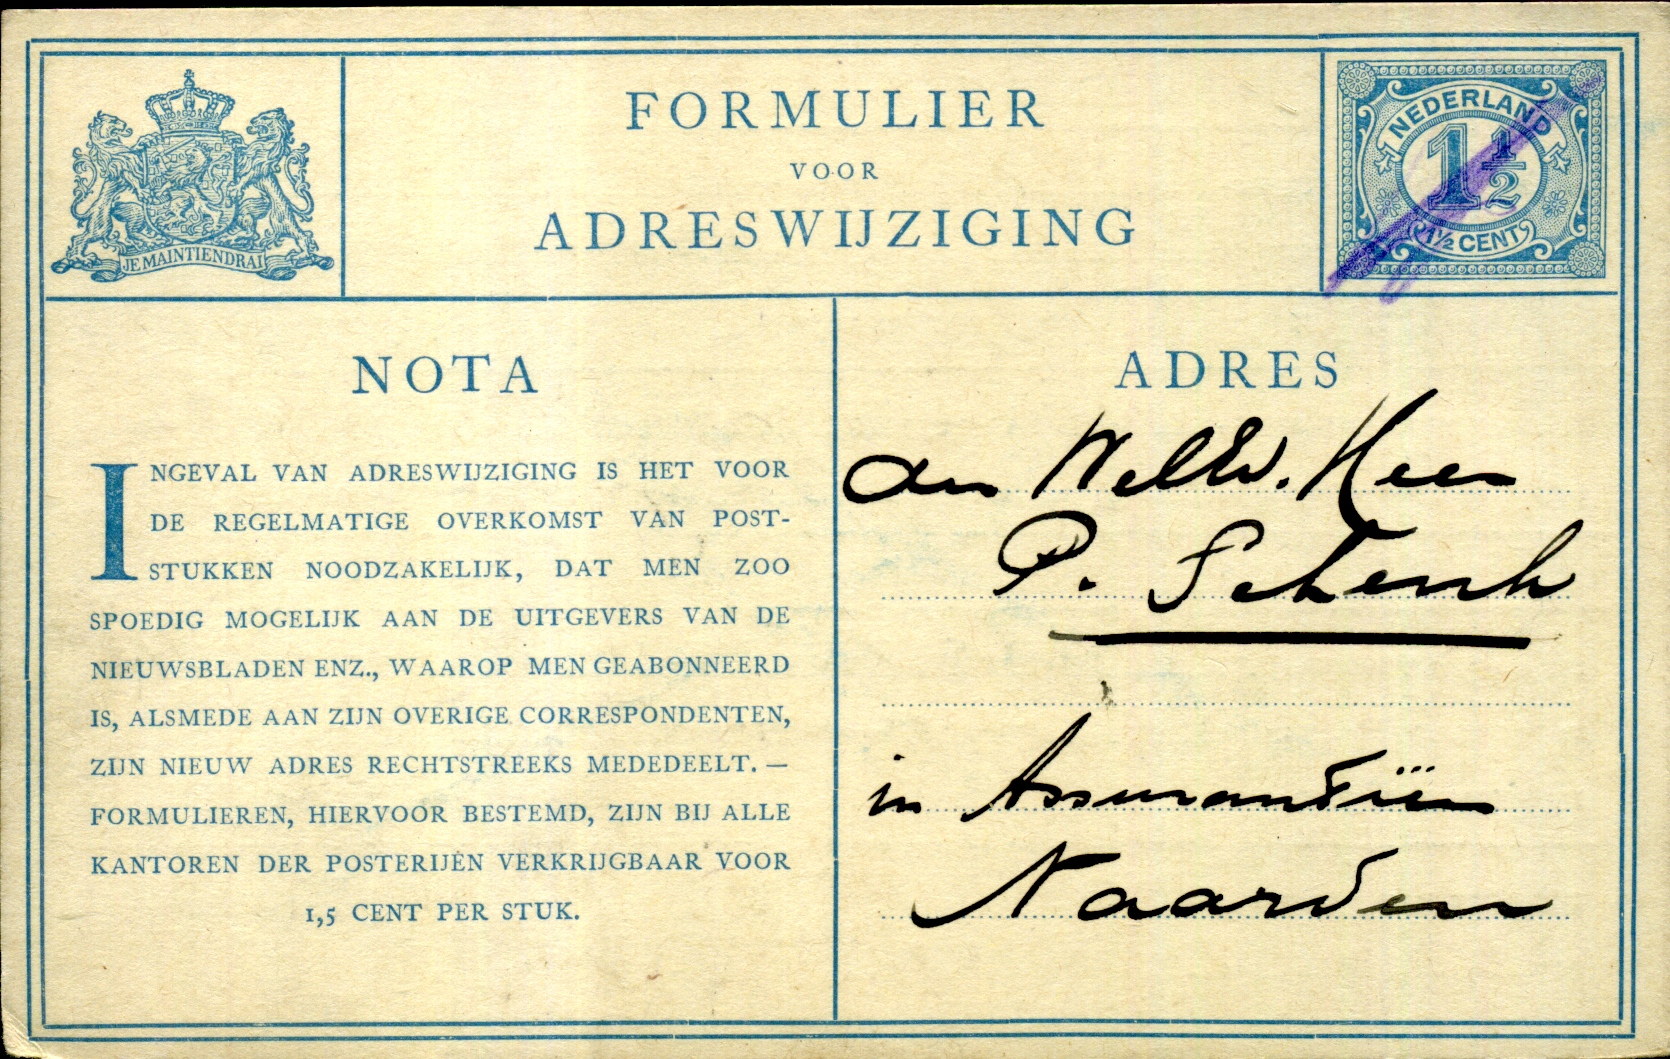 JE MAINTIENDRAI
FORMULIER
VOOR
ADRESWIJZIGING
NEDERLAND
1 1/2
1½ CENT
NOTA
INGEVAL VAN ADRESWIJZIGING IS HET VOOR
DE REGELMATIGE OVERKOMST VAN POST-
STUKKEN NOODZAKELIJK, DAT MEN ZOO
SPOEDIG MOGELIJK AAN DE UITGEVERS VAN DE
NIEUWSBLADEN ENZ., WAAROP MEN GEABONNEERD
IS, ALSMEDE AAN ZIJN OVERIGE CORRESPONDENTEN,
ZIJN NIEUW ADRES RECHTSTREEKS MEDEDEELT. —
FORMULIEREN, HIERVOOR BESTEMD, ZIJN BIJ ALLE
KANTOREN DER POSTERIJEN VERKRIJGBAAR VOOR
1,5 CENT PER STUK.
ADRES
den WelEd. Heer
P. Schenk
in Assurantiën
Naarden